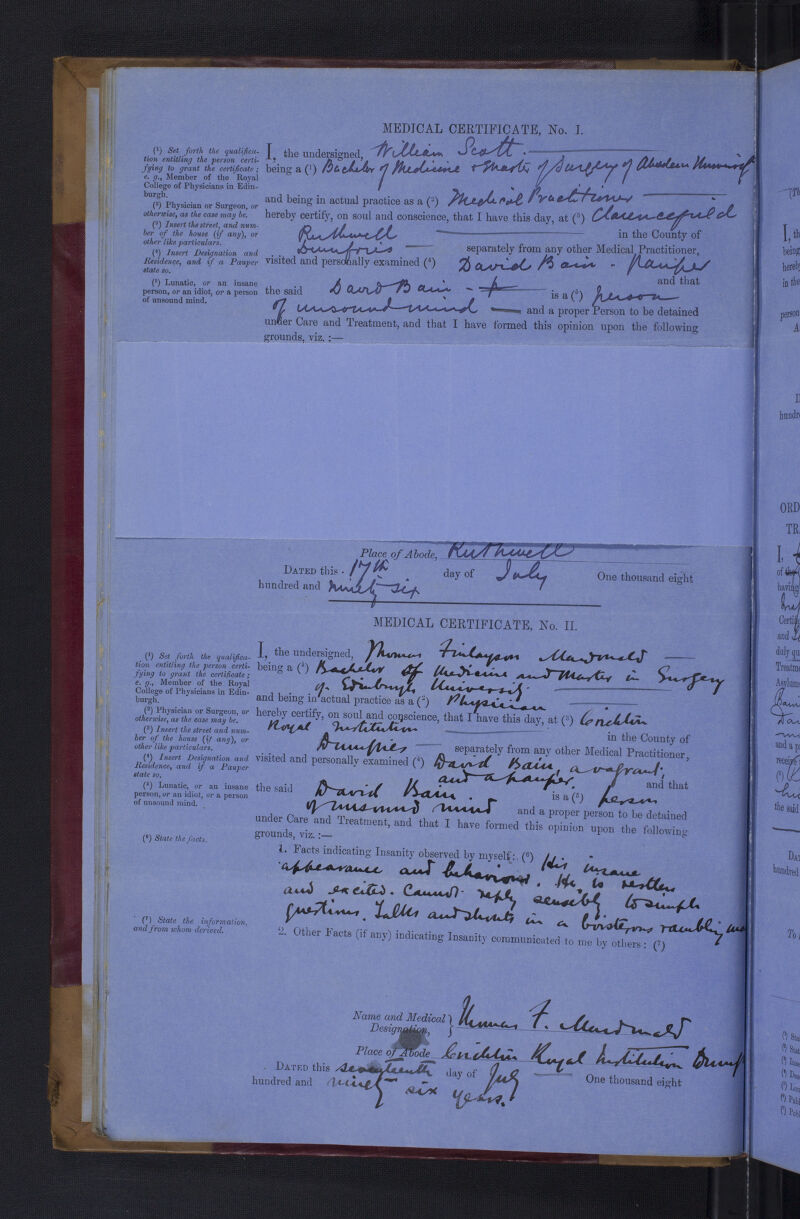 MEDICAL CERTIFICATE, No. I.
(¹) Set forth the qualifica-
tion entitling the person certi-
fying to grant the certificate;
e. g., Member of the Royal
College of Physicians in Edin-
burgh.
(²) Physician or Surgeon, or
otherwise, as the case may be.
(³) Insert the street, and num-
ber of the house (if any), or
other like particulars.
(⁴) Insert Designation and
Residence, and if a Pauper
state so.
(⁵) Lunatic, or an insane
person, or an idiot, or a person
of unsound mind.
I, the undersigned, William Scott.
being a (¹) Bachelor of Medicine + Master of Surgery of Aberdeen University
and being in actual practice as a (²) Medical Practitioner
hereby certify, on soul and conscience, that I have this day, at (³) Clarencefield
Ruthwell in the County of
Dumfries separately from any other Medical Practitioner,
visited and personally examined (⁴) David Bain - Pauper
and that
the said David Bain is a (⁵) person
of unsound mind and a proper Person to be detained
under Care and Treatment, and that I have formed this opinion upon the following
grounds, viz. :—
Place of Abode, Ruthwell
DATED this 17th day of July One thousand eight
hundred and ninety six
MEDICAL CERTIFICATE, No. II.
(¹) Set forth the qualifica-
tion entitling the person certi-
fying to grant the certificate;
e. g., Member of the Royal
College of Physicians in Edin-
burgh.
(²) Physician or Surgeon, or
otherwise, as the case may be.
(³) Insert the street and num-
ber of the house (if any), or
other like particulars.
(⁴) Insert Designation and
Residence, and if a Pauper
state so.
(⁵) Lunatic, or an insane
person, or an idiot, or a person
of unsound mind.
(⁶) State the facts.
(⁷) State the information,
and from whom derived.
I, the undersigned, Thomas Finlayson Macdonald
being a (¹) Bachelor of Medicine and Master in Surgery
of Edinburgh University.
and being in actual practice as a (²) Physician
hereby certify, on soul and conscience, that I have this day, at (³) Crichton
Royal Institution in the County of
Dumfries separately from any other Medical Practitioner,
visited and personally examined (⁴) David Bain, a vagrant,
and a pauper. and that
the said David Bain. is a (⁵) person
of unsound mind and a proper person to be detained
under Care and Treatment, and that I have formed this opinion upon the following
grounds, viz. :—
1. Facts indicating Insanity observed by myself: (⁶) His insane
appearance and behaviour. He is restless
and excited. Cannot reply sensibly to simple
questions. Talks and shouts in a boisterous rambling
2. Other Facts (if any) indicating Insanity communicated to me by others: (⁷)
Name and Medical Designation, Thomas F. Macdonald
Place of Abode Crichton Royal Institution
DATED this seventeenth day of July One thousand eight
hundred and ninety six years.